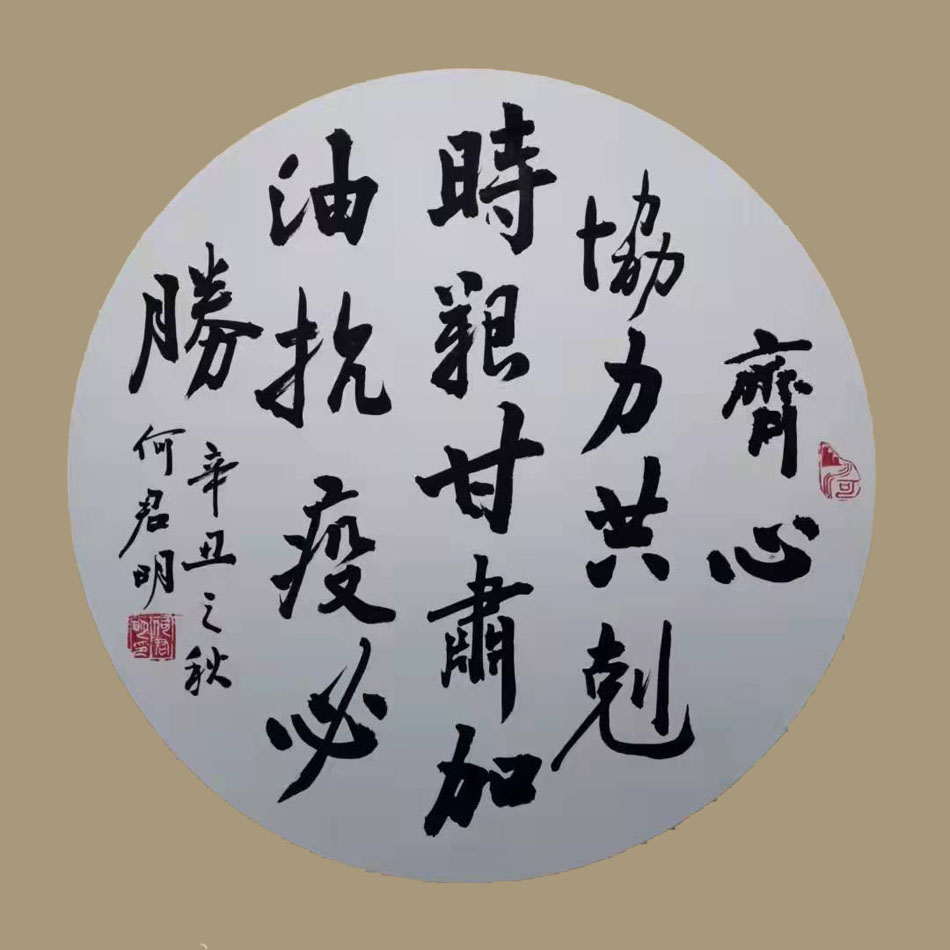 齊心
協力共剋
時艱甘肅加
油抗疫必
勝
辛丑之秋
何君明
何君明印